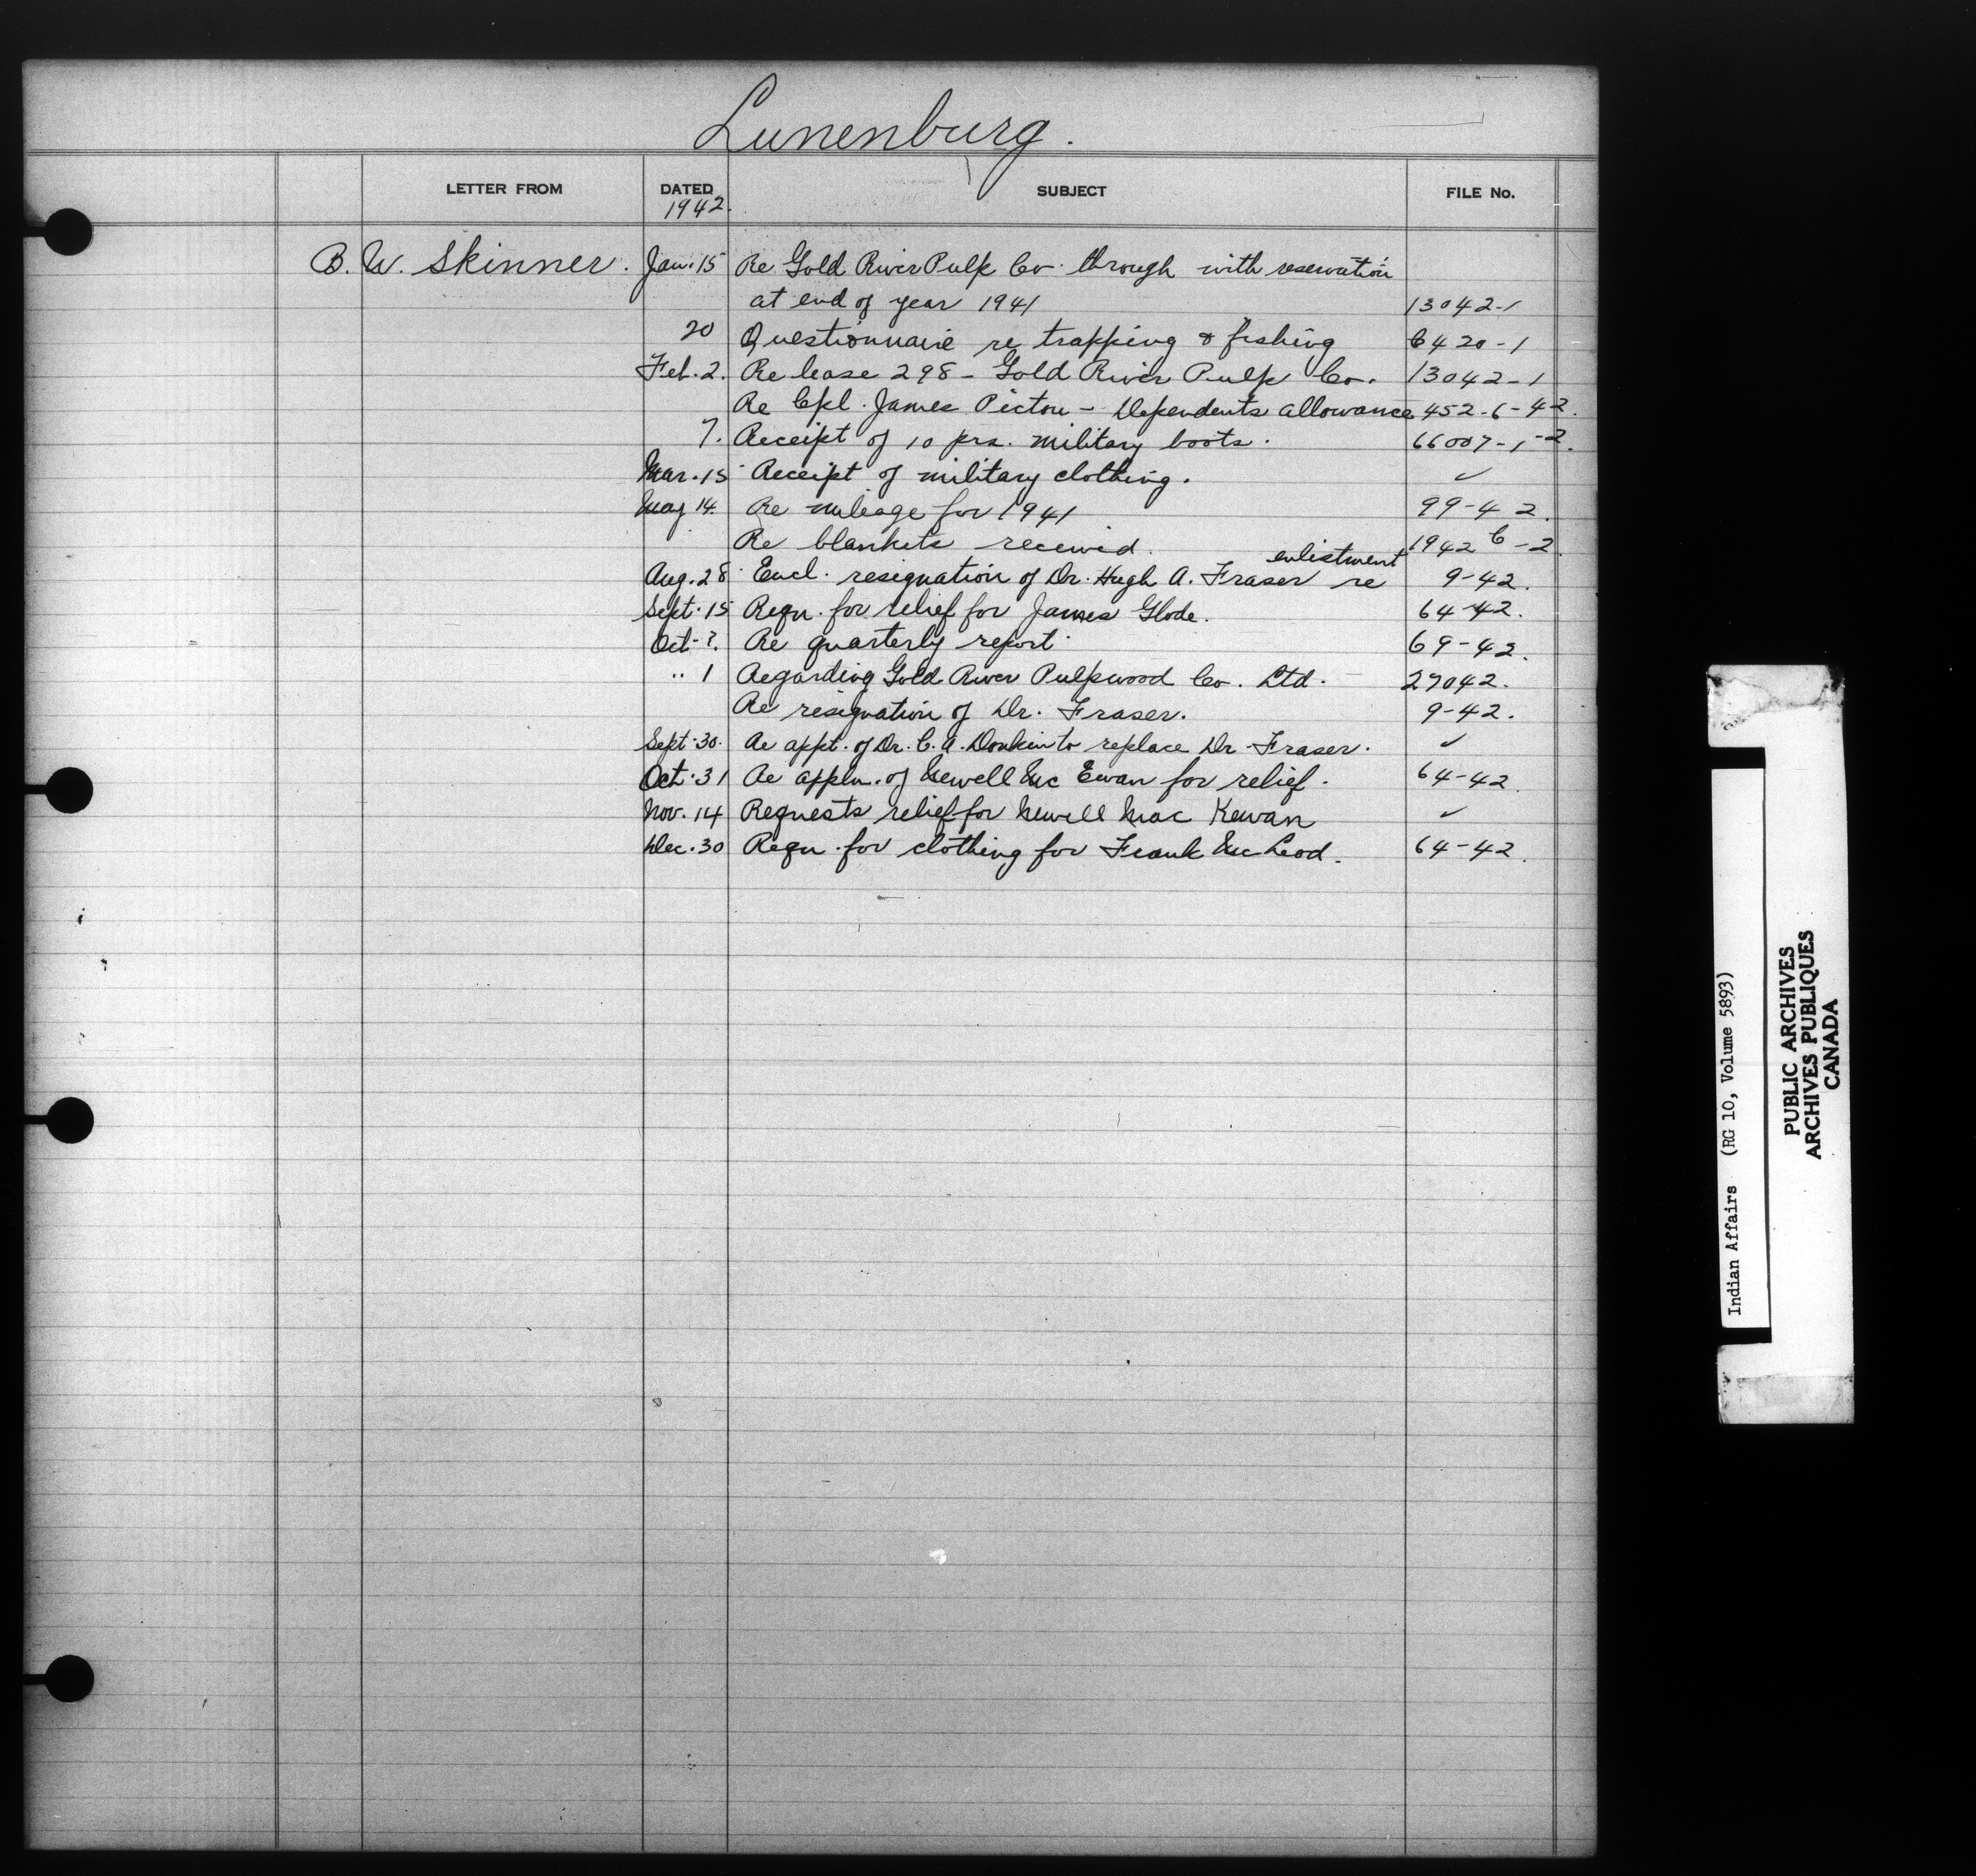 Lunenburg.
LETTER FROM DATED SUBJECT FILE No.
1942.
B. W. Skinner. Jan. 15 Re Gold River Pulp Co. through with reservation
at end of year 1941 13042-1
20 Questionnaire re trapping & fishing 6420-1
Feb. 2. Re lease 298 - Gold River Pulp Co. 13042-1
Re Cpl. James Pictou - Dependents allowance 452-6-42.
7. Receipt of 10 prs. military boots. 66007-1-2.
Mar. 15 Receipt of military clothing. ✓
May 14. Re mileage for 1941 99-42.
Re blankets received. 1942 C-2.
enlistment
Aug. 28 Encl. resignation of Dr. Hugh A. Fraser re 9-42.
Sept. 15 Reqn. for relief for James Glode. 64-42.
Oct - ?. Re quarterly report 69-42.
" 1 Regarding Gold River Pulpwood Co. Ltd. 27042.
Re resignation of Dr. Fraser. 9-42.
Sept. 30. Re appt. of Dr. C. A. Donkin to replace Dr. Fraser. ✓
Oct. 31 Re appln. of Newell Mc Ewan for relief. 64-42.
Nov. 14 Requests relief for Newell Mac Kewan ✓
Dec. 30 Reqn. for clothing for Frank Mc Leod. 64-42.
Indian Affairs (RG 10, Volume 5893)
PUBLIC ARCHIVES
ARCHIVES PUBLIQUES
CANADA